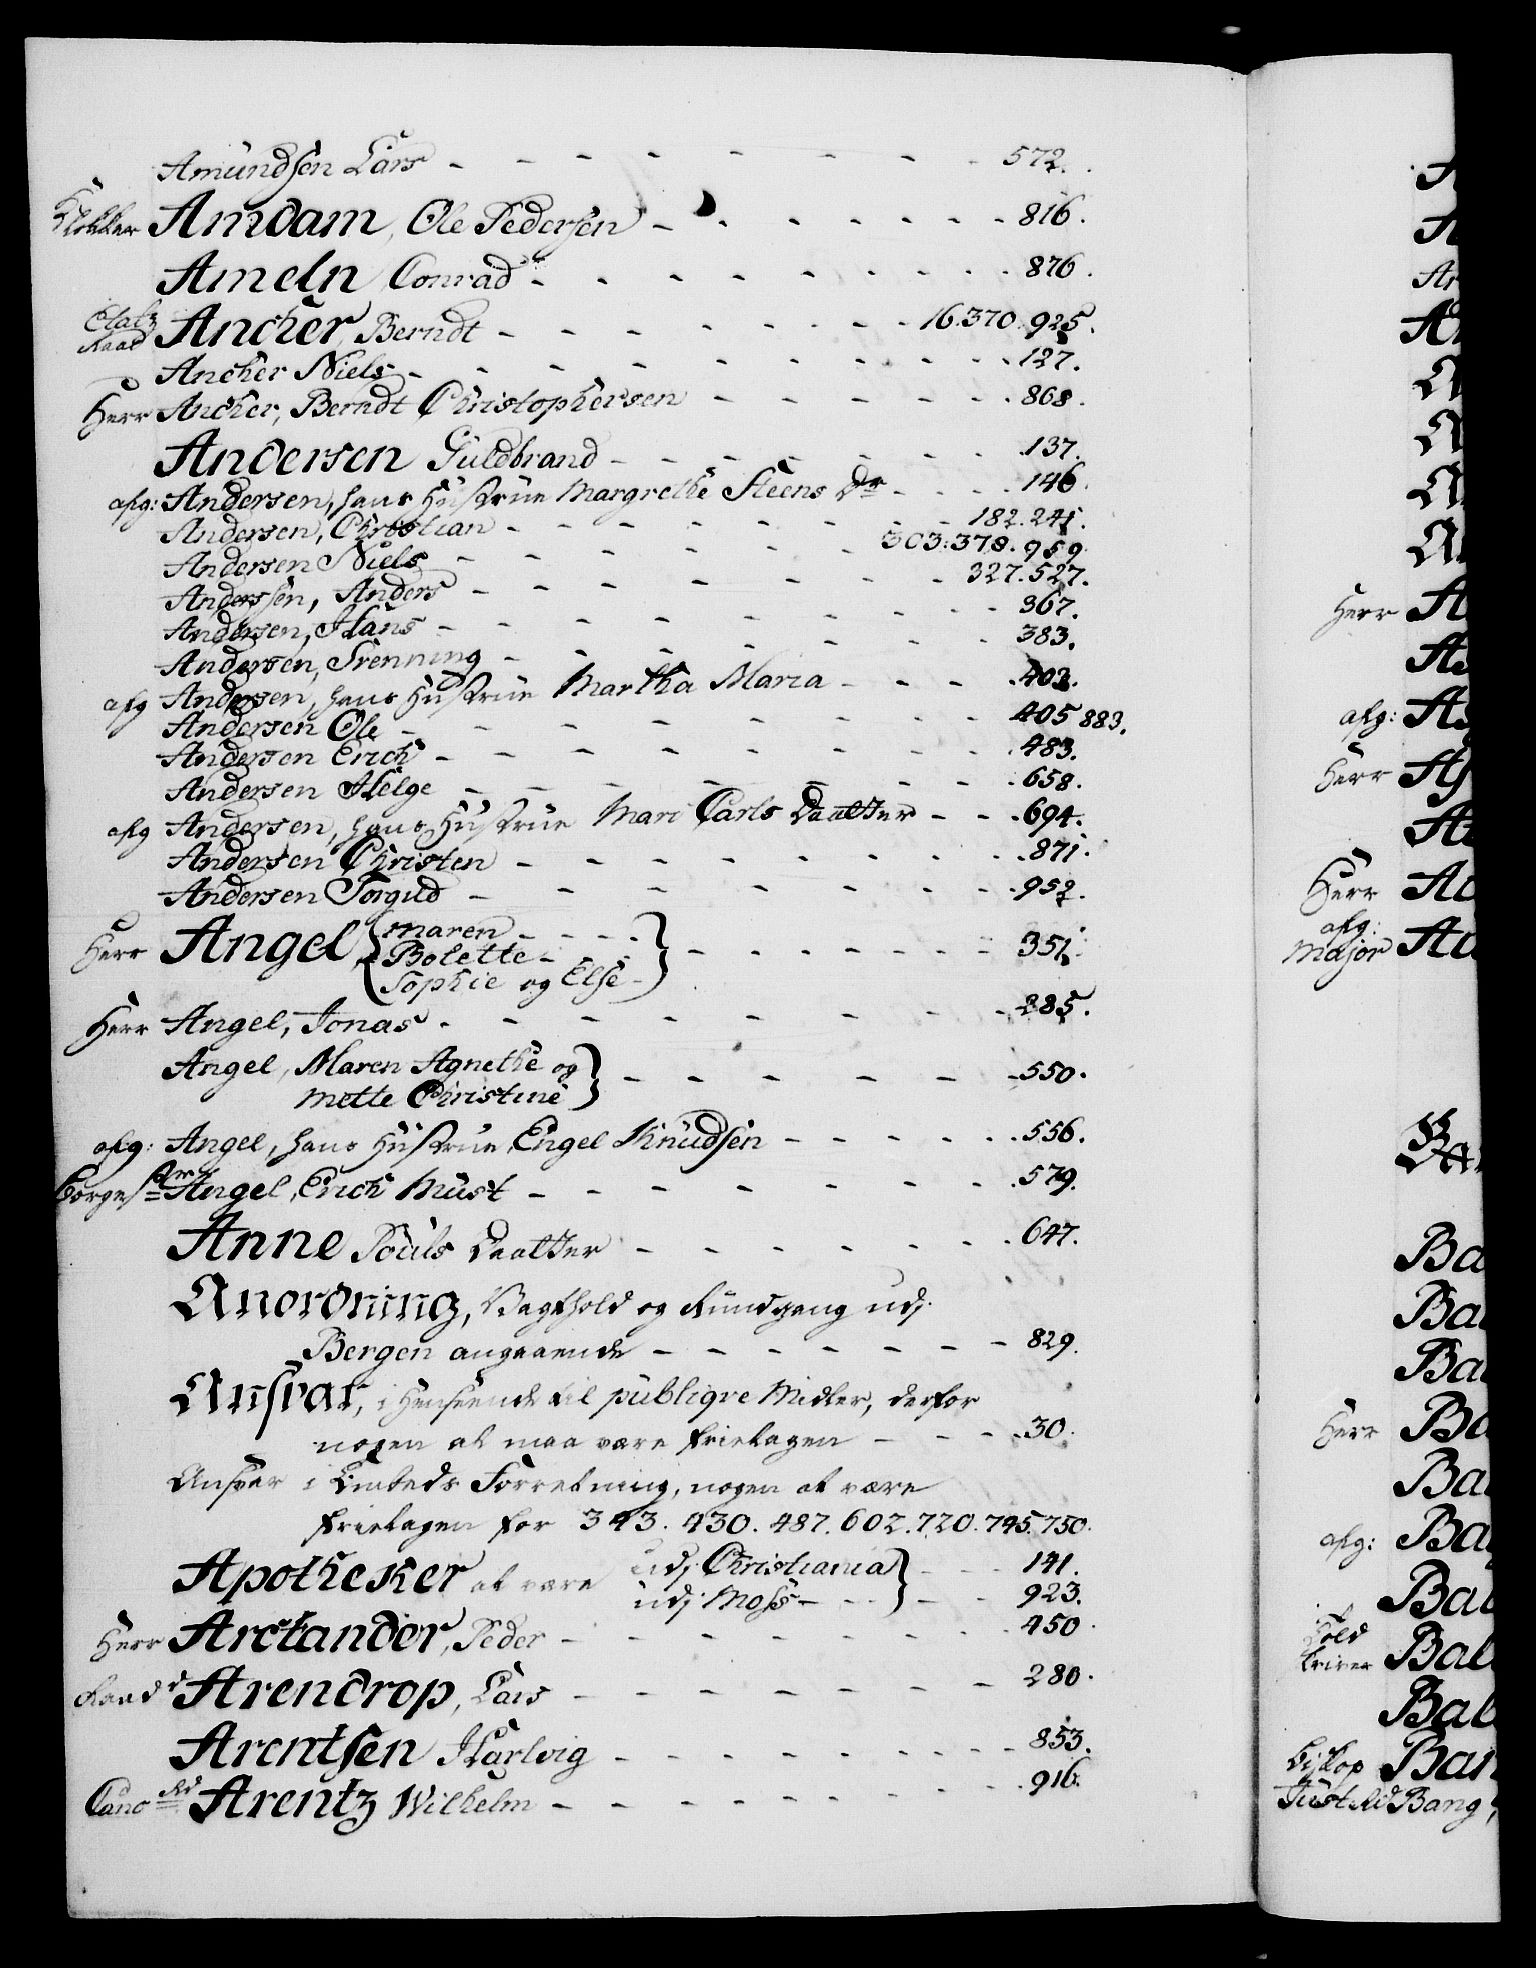 Amundsen Lars - - - - - - - - 572.
Klokker Amdam, Ole Pedersen - - - - - - - 816.
Ameln Conrad - - - - - - - - 876.
Etatz Raad Ancher, Berndt - - - - - - - 16.370.925.
Ancher Niels - - - - - - - - 127.
Herr Ancher, Berndt Christophersen - - - - - 868.
Andersen Guldbrand - - - - - - - 137.
afg: Andersen, hans Hustrue Margrethe Steens Dr - - - 146.
Andersen, Christian - - - - - - 182.241.
Andersen Niels - - - - - - 303.378.959.
Anderssen, Anders - - - - - - 327.527.
Andersen, Hans - - - - - - - 367.
Andersen, Trenning - - - - - - - 383.
afg Andersen, hans Hustrue Martha Maria - - - - 403.
Andersen Ole - - - - - - - 405 883.
Andersen Erich - - - - - - - 483.
Andersen Helge - - - - - - - 658.
afg Andersen, hans Hustrue Mari Carls Daatter - - - 694.
Andersen Christen - - - - - - - 871.
Andersen Torgud - - - - - - - 952.
Herr Angel, Maren - - - -
Bolette - - - - - - - - - 351.
Sophie og Else -
Herr Angel, Jonas - - - - - - - - 285.
Angel, Maren Agnethe og
Mette Christine - - - - - - 550.
afg: Angel, hans Hustrue Engel Knudsen - - - - - 556.
Borgermr Angel, Erich Must - - - - - - - - 579.
Anne Pouls Daatter - - - - - - - 647.
Anordning, Vagthold og Rundgang udj
Bergen angaaende - - - - - - - 829.
Ansvar, i Henseende til publiqve Midler, derfor
nogen at maa være fritagen - - - - 30.
Ansvar i Embeds Forretning, nogen at være
fritagen for 343. 430. 487. 602. 720. 745. 750.
Apotheker at være udj Christiania - - - 141.
udj Moss - - - - - 923.
Herr Arctander, Peder - - - - - - - - 450.
Raadd Arendrop, Lars - - - - - - - 280.
Arentsen Hartvig - - - - - - - - 853.
Canc Rd Arentz Wilhelm - - - - - - - - 916.
Herr
afg:
Herr
Herr
afg:
Major
Ba
Ba
Ba
Herr Ba
Ba
afg: Ba
Ba
Bal
Bal
Biskop Ban
Just Rd Bang,